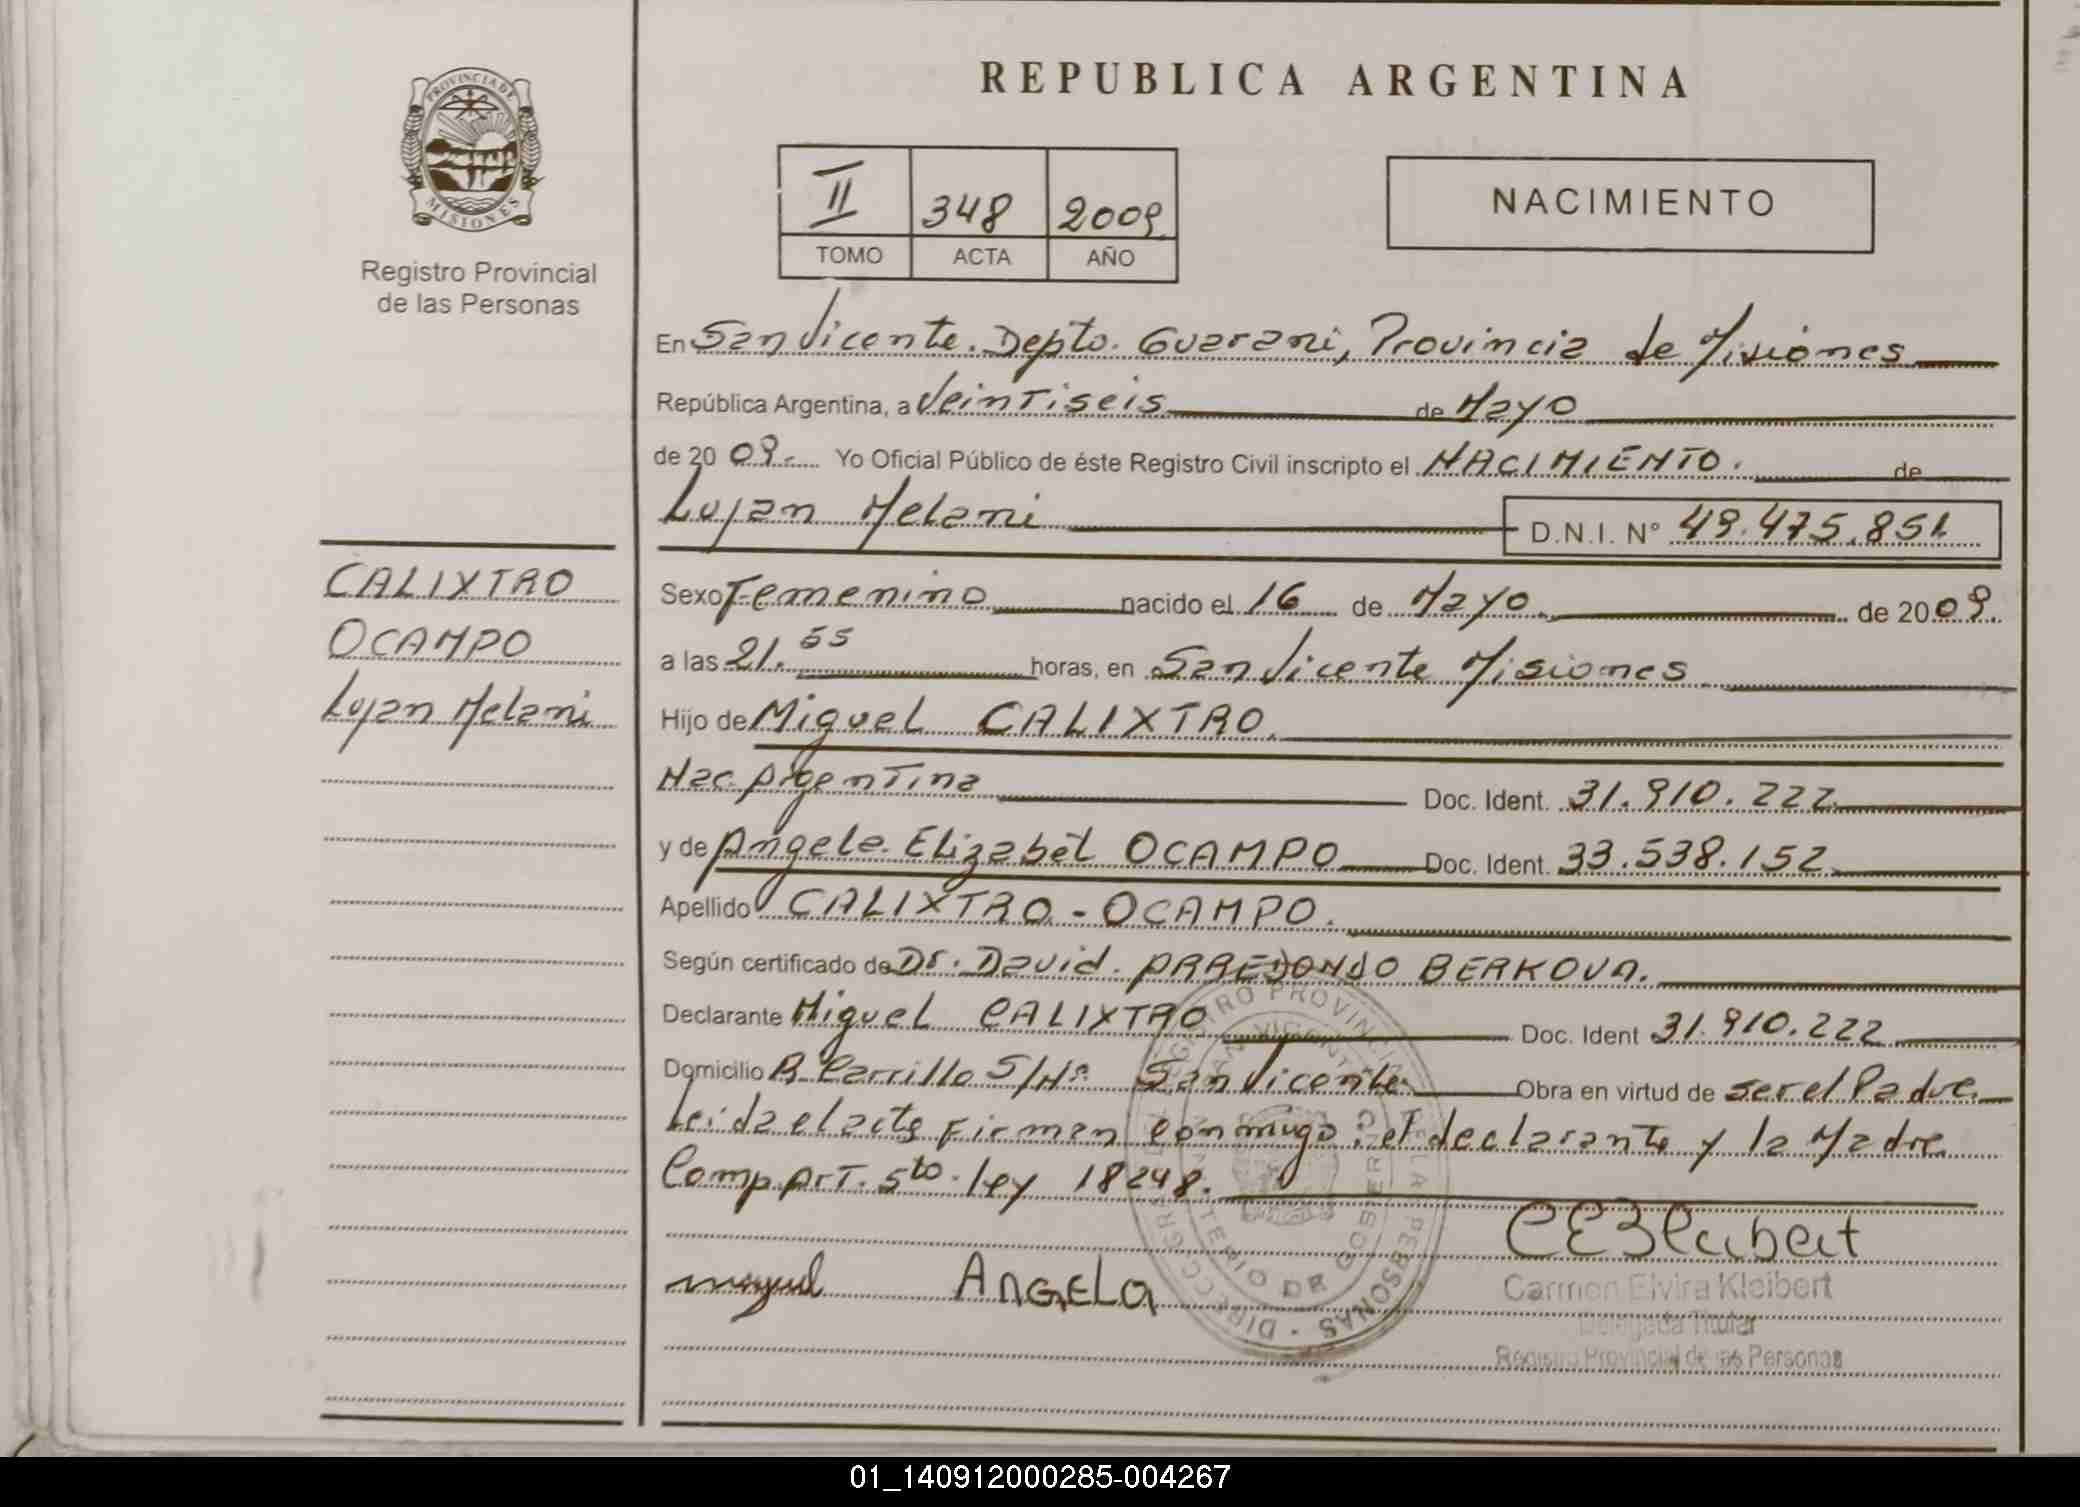 PROVINCIA DE
MISIONES
Registro Provincial
de las Personas
CALIXTRO
OCAMPO
Lujan Melani
REPUBLICA ARGENTINA
II 348 2009
TOMO ACTA AÑO
NACIMIENTO
En San Vicente. Depto. Guarani, Provincia de Misiones
República Argentina, a Veintiseis de Mayo
de 20 09.- Yo Oficial Público de éste Registro Civil inscripto el NACIMIENTO. de
Lujan Melani D.N.I. N° 49.475.851
Sexo Femenino nacido el 16 de Mayo. de 20 09.
a las 21.55 horas, en San Vicente Misiones
Hijo de Miguel CALIXTRO.
Nac. Argentina Doc. Ident. 31.910.222
y de Angela Elizabet OCAMPO Doc. Ident. 33.538.152
Apellido CALIXTRO - OCAMPO.
Según certificado de Dr. David. ARREDONDO BERKOVA.
Declarante Miguel CALIXTRO Doc. Ident 31.910.222
Domicilio B Carrillo S/Nº San Vicente Obra en virtud de ser el Padre.
Leida el acta Firman conmigo: el declarante y la Madre
Comp. Art. 5to. ley 18248.
Miguel ANGELA
Carmen Elvira Kleibert
Delegada Titular
Registro Provincial de las Personas
01_140912000285-004267